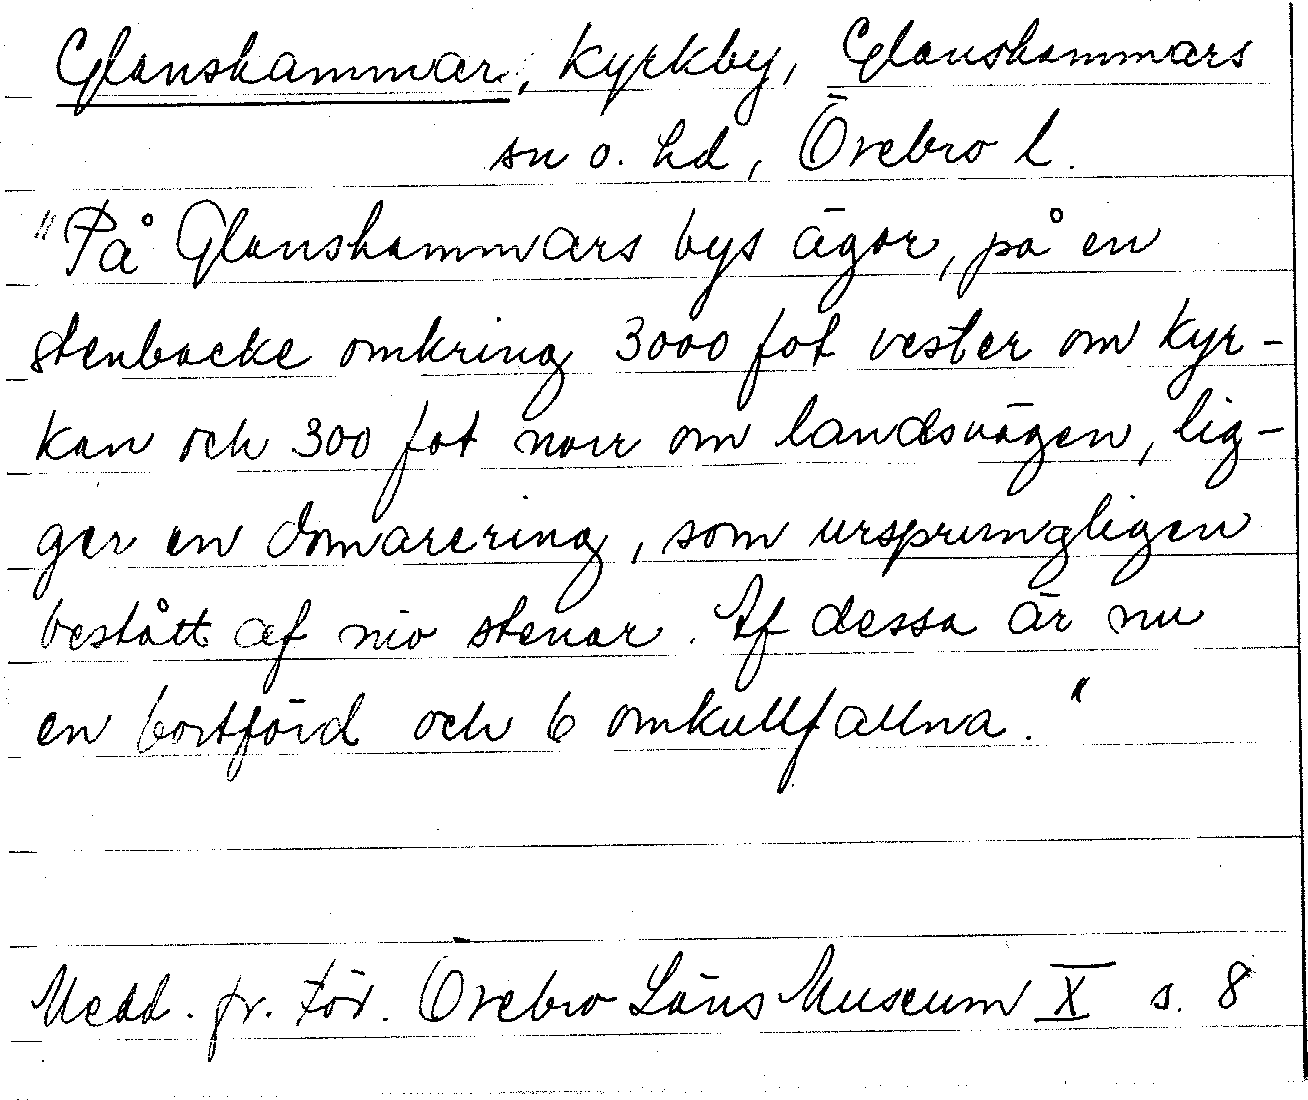 Glanshammar, kyrkby, Glanshammars
sn o. hd, Örebro l.
"På Glanshammars bys ägor, på en
stenbacke omkring 3000 fot vester om kyr-
kan och 300 fot norr om landsvägen, lig-
ger en domarering, som ursprungligen
bestått af nio stenar. Af dessa är nu
en bortförd och 6 omkullfallna."
Medd. fr. För. Örebro Läns Museum X s. 8